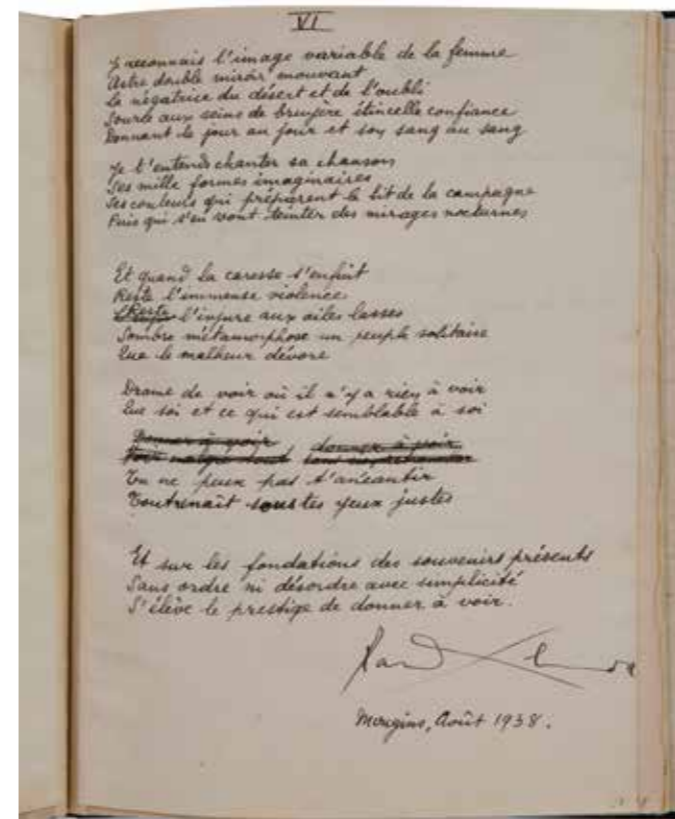 VI
Je reconnais l'image variable de la femme
Astre double miroir mouvant
La négatrice du désert et de l'oubli
Source aux seins de bruyère étincelle confiance
Donnant le jour au jour et son sang au sang
Je t'entends chanter sa chanson
Ses mille formes imaginaires
Ses couleurs qui préparent le lit de la campagne
Puis qui s'en vont teinter des mirages nocturnes
Et quand la caresse s'enfuit
Reste l'immense violence
Reste l'injure aux ailes lasses
Sombre métamorphose un peuple solitaire
Que le malheur dévore
Drame de voir où il n'y a rien à voir
Que soi et ce qui est semblable à soi
Donner à voir donner à voir
Tu ne peux pas t'anéantir
Tout renaît sous tes yeux justes
Et sur les fondations des souvenirs présents
Sans ordre ni désordre avec simplicité
S'élève le prestige de donner à voir.
Mougins, Août 1938.